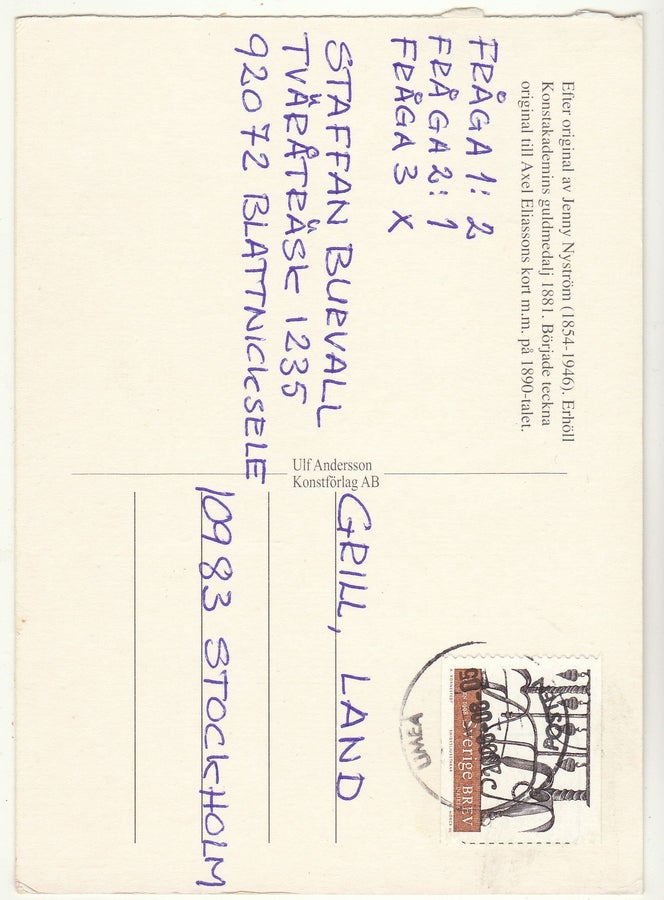 Efter original av Jenny Nyström (1854-1946). Erhöll
Konstakademins guldmedalj 1881. Började teckna
original till Axel Eliassons kort m.m. på 1890-talet.
FRÅGA 1: 2
FRÅGA 2: 1
FRÅGA 3 X
STAFFAN BURVALL
TVÄRÅTRÄSK 1235
92072 BLATTNICKSELE
Ulf Andersson
Konstförlag AB
GRILL, LAND
10983 STOCKHOLM
POSTEN
UMEÅ
Sverige BREV